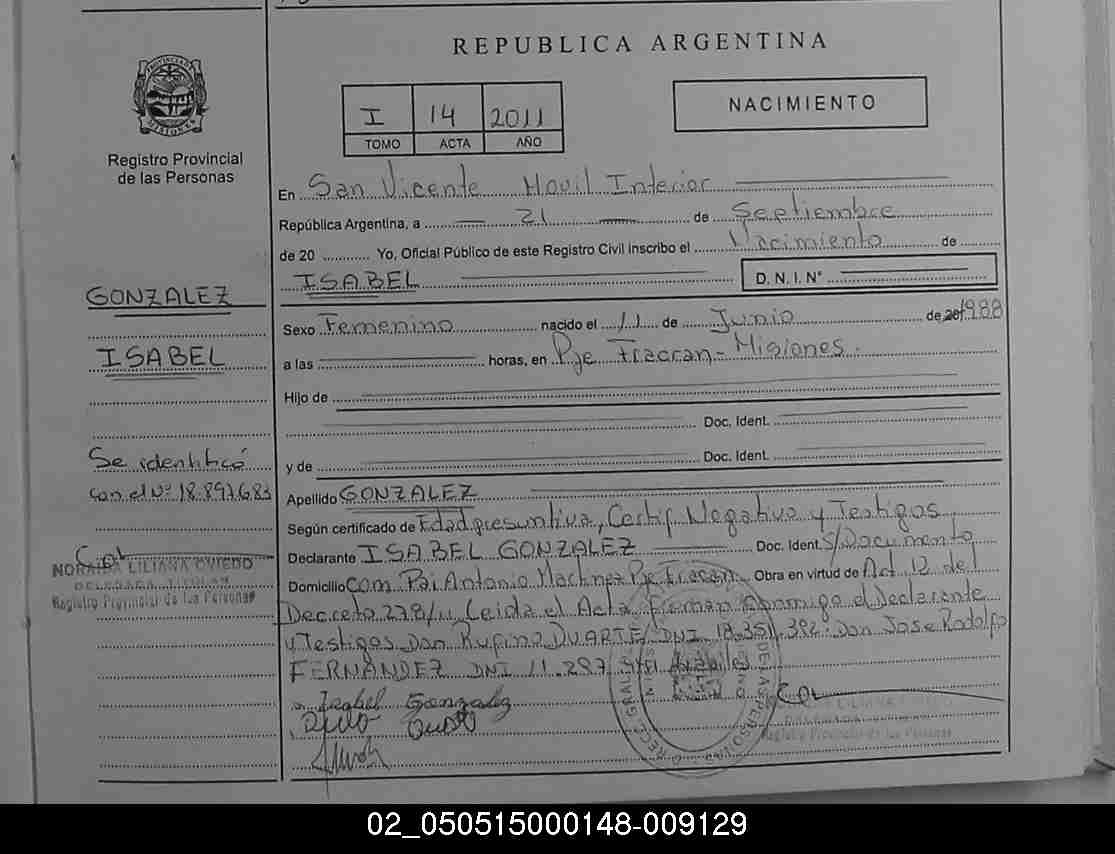 REPUBLICA ARGENTINA
PROVINCIA DE MISIONES
Registro Provincial
de las Personas
I 14 2011
TOMO ACTA AÑO
NACIMIENTO
En San Vicente Movil Interior
República Argentina, a 21 de Septiembre
de 20 Yo, Oficial Público de este Registro Civil inscribo el Nacimiento de
ISABEL D. N. I. Nº
GONZALEZ
ISABEL
Sexo Femenino nacido el 11 de Junio de 1988
a las horas, en Pje Fracran - Misiones.
Hijo de
Doc. Ident.
y de Doc. Ident.
Se identificó
con el Nº 18.897.683
Apellido GONZALEZ
Según certificado de Edad presuntiva, Certif. Negativo y Testigos
Declarante ISABEL GONZALEZ Doc. Ident. S/Documento
Domicilio Com. Pai Antonio Martinez Pje Fracan Obra en virtud de Art. 12 del
Decreto 278/11 Leida el Acta Firman Conmigo el Declarante
y Testigos Don Rufino DUARTE DNI 18.351.392. Don Jose Rodolfo
FERNANDEZ DNI 11.297
Isabel Gonzalez
NORAIDA LILIANA OVIEDO
DELEGADA TITULAR
Registro Provincial de las Personas
LILIANA OVIEDO
Registro Provincial de las Personas
02_050515000148-009129